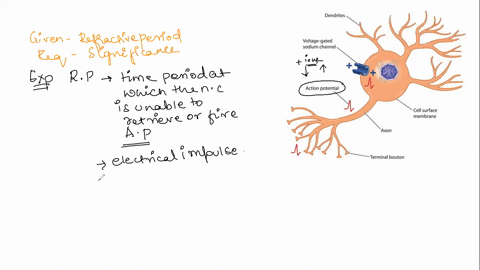 Given - Refractive period
Req - Significance
Exp R.P → time period at
which the n.c
is unable to
retrieve or fire
A.p
→ electrical impulse.
Dendrites
Voltage-gated
sodium channel
+ ions
Action potential
Cell surface
membrane
Axon
Terminal bouton